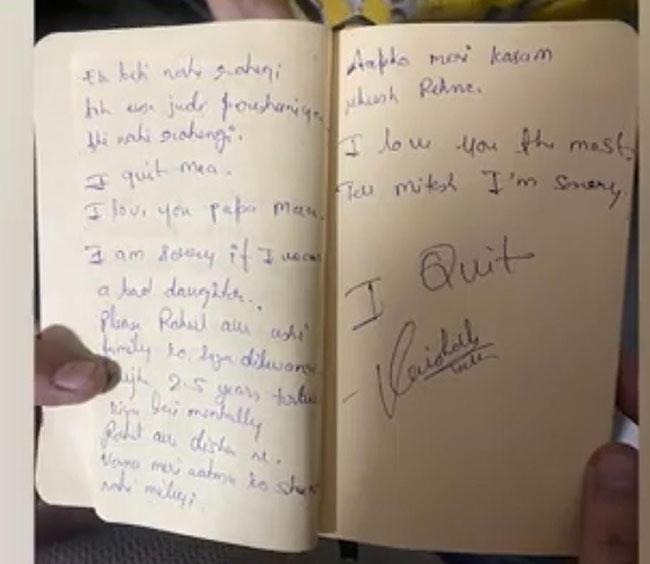 Ek beti nahi rahegi
toh use judi preshaniya
bhi nahi rahengi.
I quit maa.
I love you papa maa.
I am sorry if I was
a bad daughter..
Please Rahul aur uski
family ko saja dilwana
Mujhe 2.5 years torture
kiya hai mentally
Rahul aur disha ne.
Varna meri aatma ko
nahi milegi.
Aapko meri kasam
khush Rehna.
I love you the most.
Tell mitesh I'm sorry.
I Quit